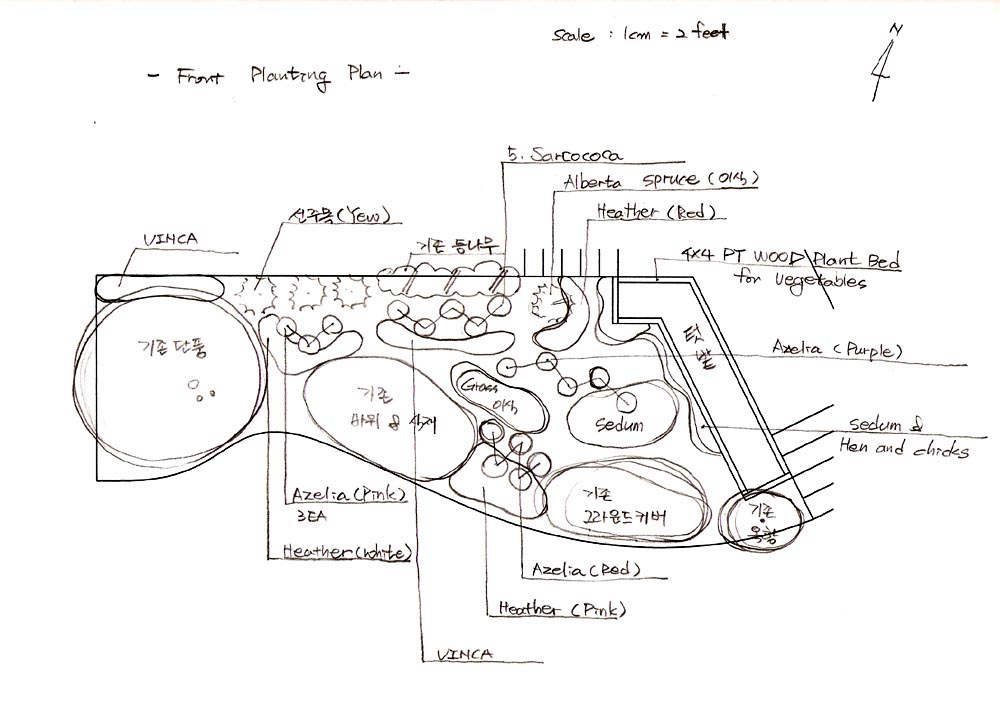 Scale : 1cm = 2 feet
N
- Front Planting Plan -
5. Sarcococa
Alberta spruce (이식)
Heather (Red)
선주목 (Yew)
VINCA
기존 등나무
4x4 PT WOOD Plant Bed
for vegetables
텃밭
기존 단풍
Azelia (Purple)
기존
바위 &
Grass
이식
Sedum
Sedum &
Hen and chicks
기존
그라운드커버
기존
Azelia (Pink)
3EA
Heather (white)
Azelia (Red)
Heather (Pink)
VINCA